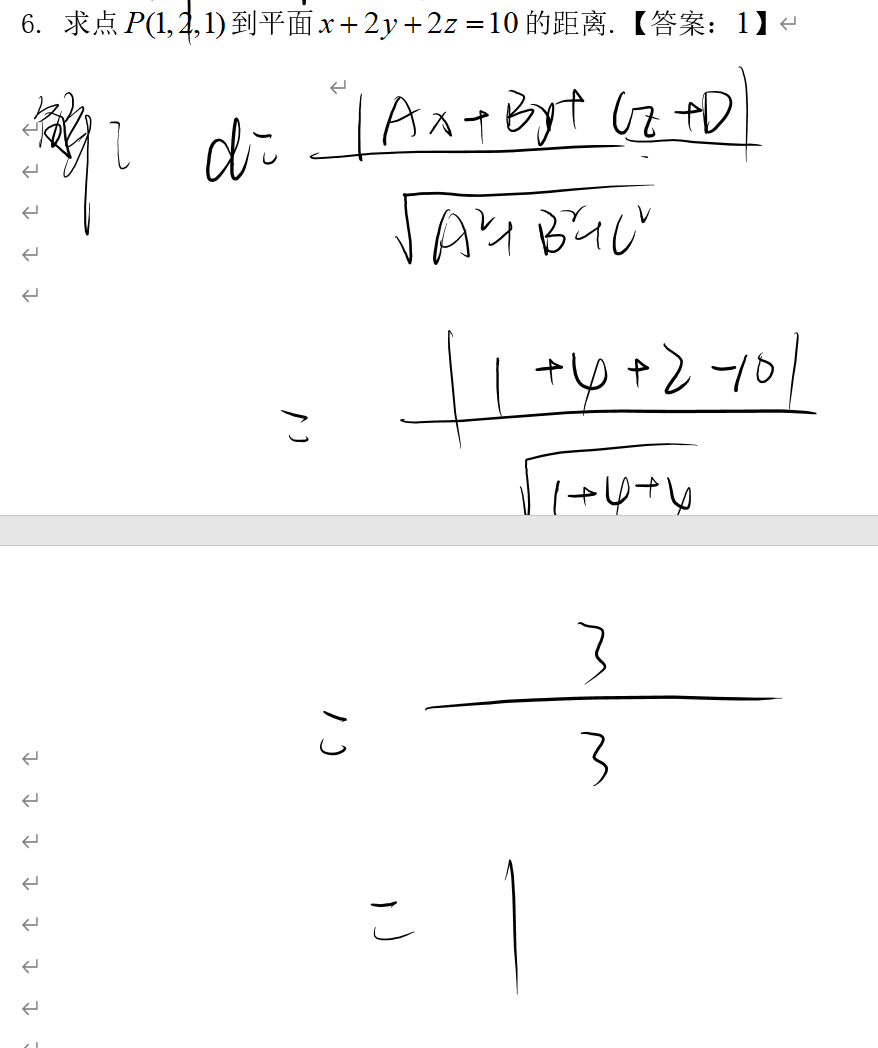 6. 求点P(1,2,1)到平面x+2y+2z=10的距离.【答案：1】↵
解： d= |Ax+By+Cz+D|
√A²+B²+C²
= |1+4+2-10|
√1+4+4
= 3
3
= 1